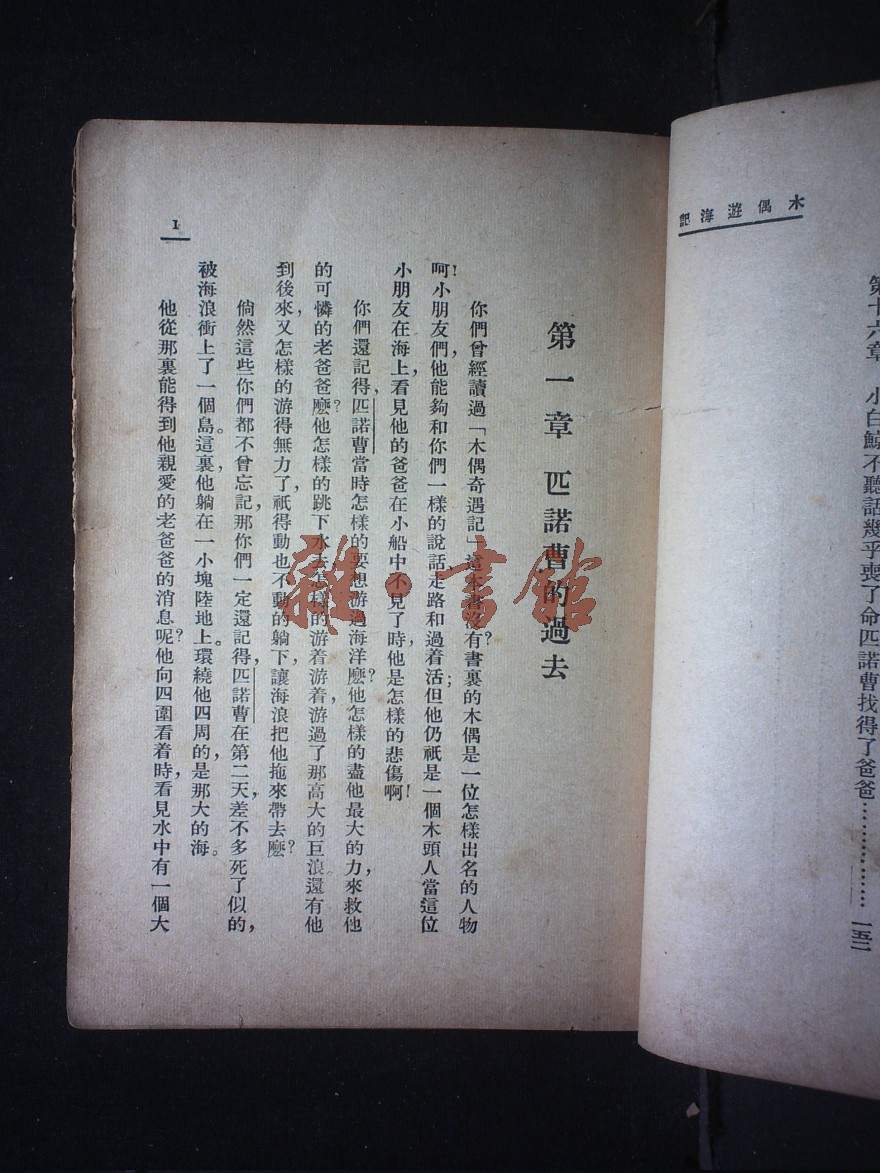 木偶遊海記
第十六章　小白鯨不聽話幾乎喪了命匹諾曹找得了爸爸………………一五二
第一章 匹諾曹的過去
你們曾經讀過「木偶奇遇記」這本書沒有?書裏的木偶是一位怎樣出名的人物
呵!小朋友們,他能夠和你們一樣的說話走路和過着活;但他仍祇是一個木頭人當這位
小朋友在海上,看見他的爸爸在小船中不見了時,他是怎樣的悲傷啊!
你們還記得,匹諾曹當時怎樣的要想游過海洋麽?他怎樣的盡他最大的力,來救他
的可憐的老爸爸麽?他怎樣的跳下水去怎樣的游着游着,游過了那高大的巨浪還有他
到後來,又怎樣的游得無力了,祇得動也不動的躺下,讓海浪把他拖來帶去麽?
倘然這些你們都不曾忘記,那你們一定還記得,匹諾曹在第二天,差不多死了似的,
被海浪衝上了一個島。這裏,他躺在一小塊陸地上。環繞他四周的,是那大的海。
他從那裏能得到他親愛的老爸爸的消息呢?他向四圍看着時,看見水中有一個大
1
雜·書館